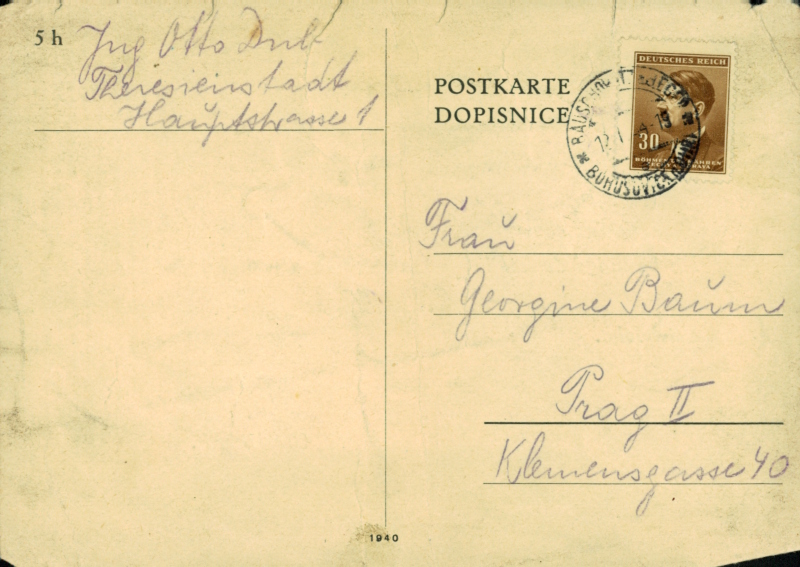 5 h
Ing Otto Dub
Theresienstadt
Hauptstrasse 1
POSTKARTE
DOPISNICE
DEUTSCHES REICH
30
BÖHMEN
BOHUŠOVICE
Frau
Georgine Baum
Prag II
Klemensgasse 40
1940